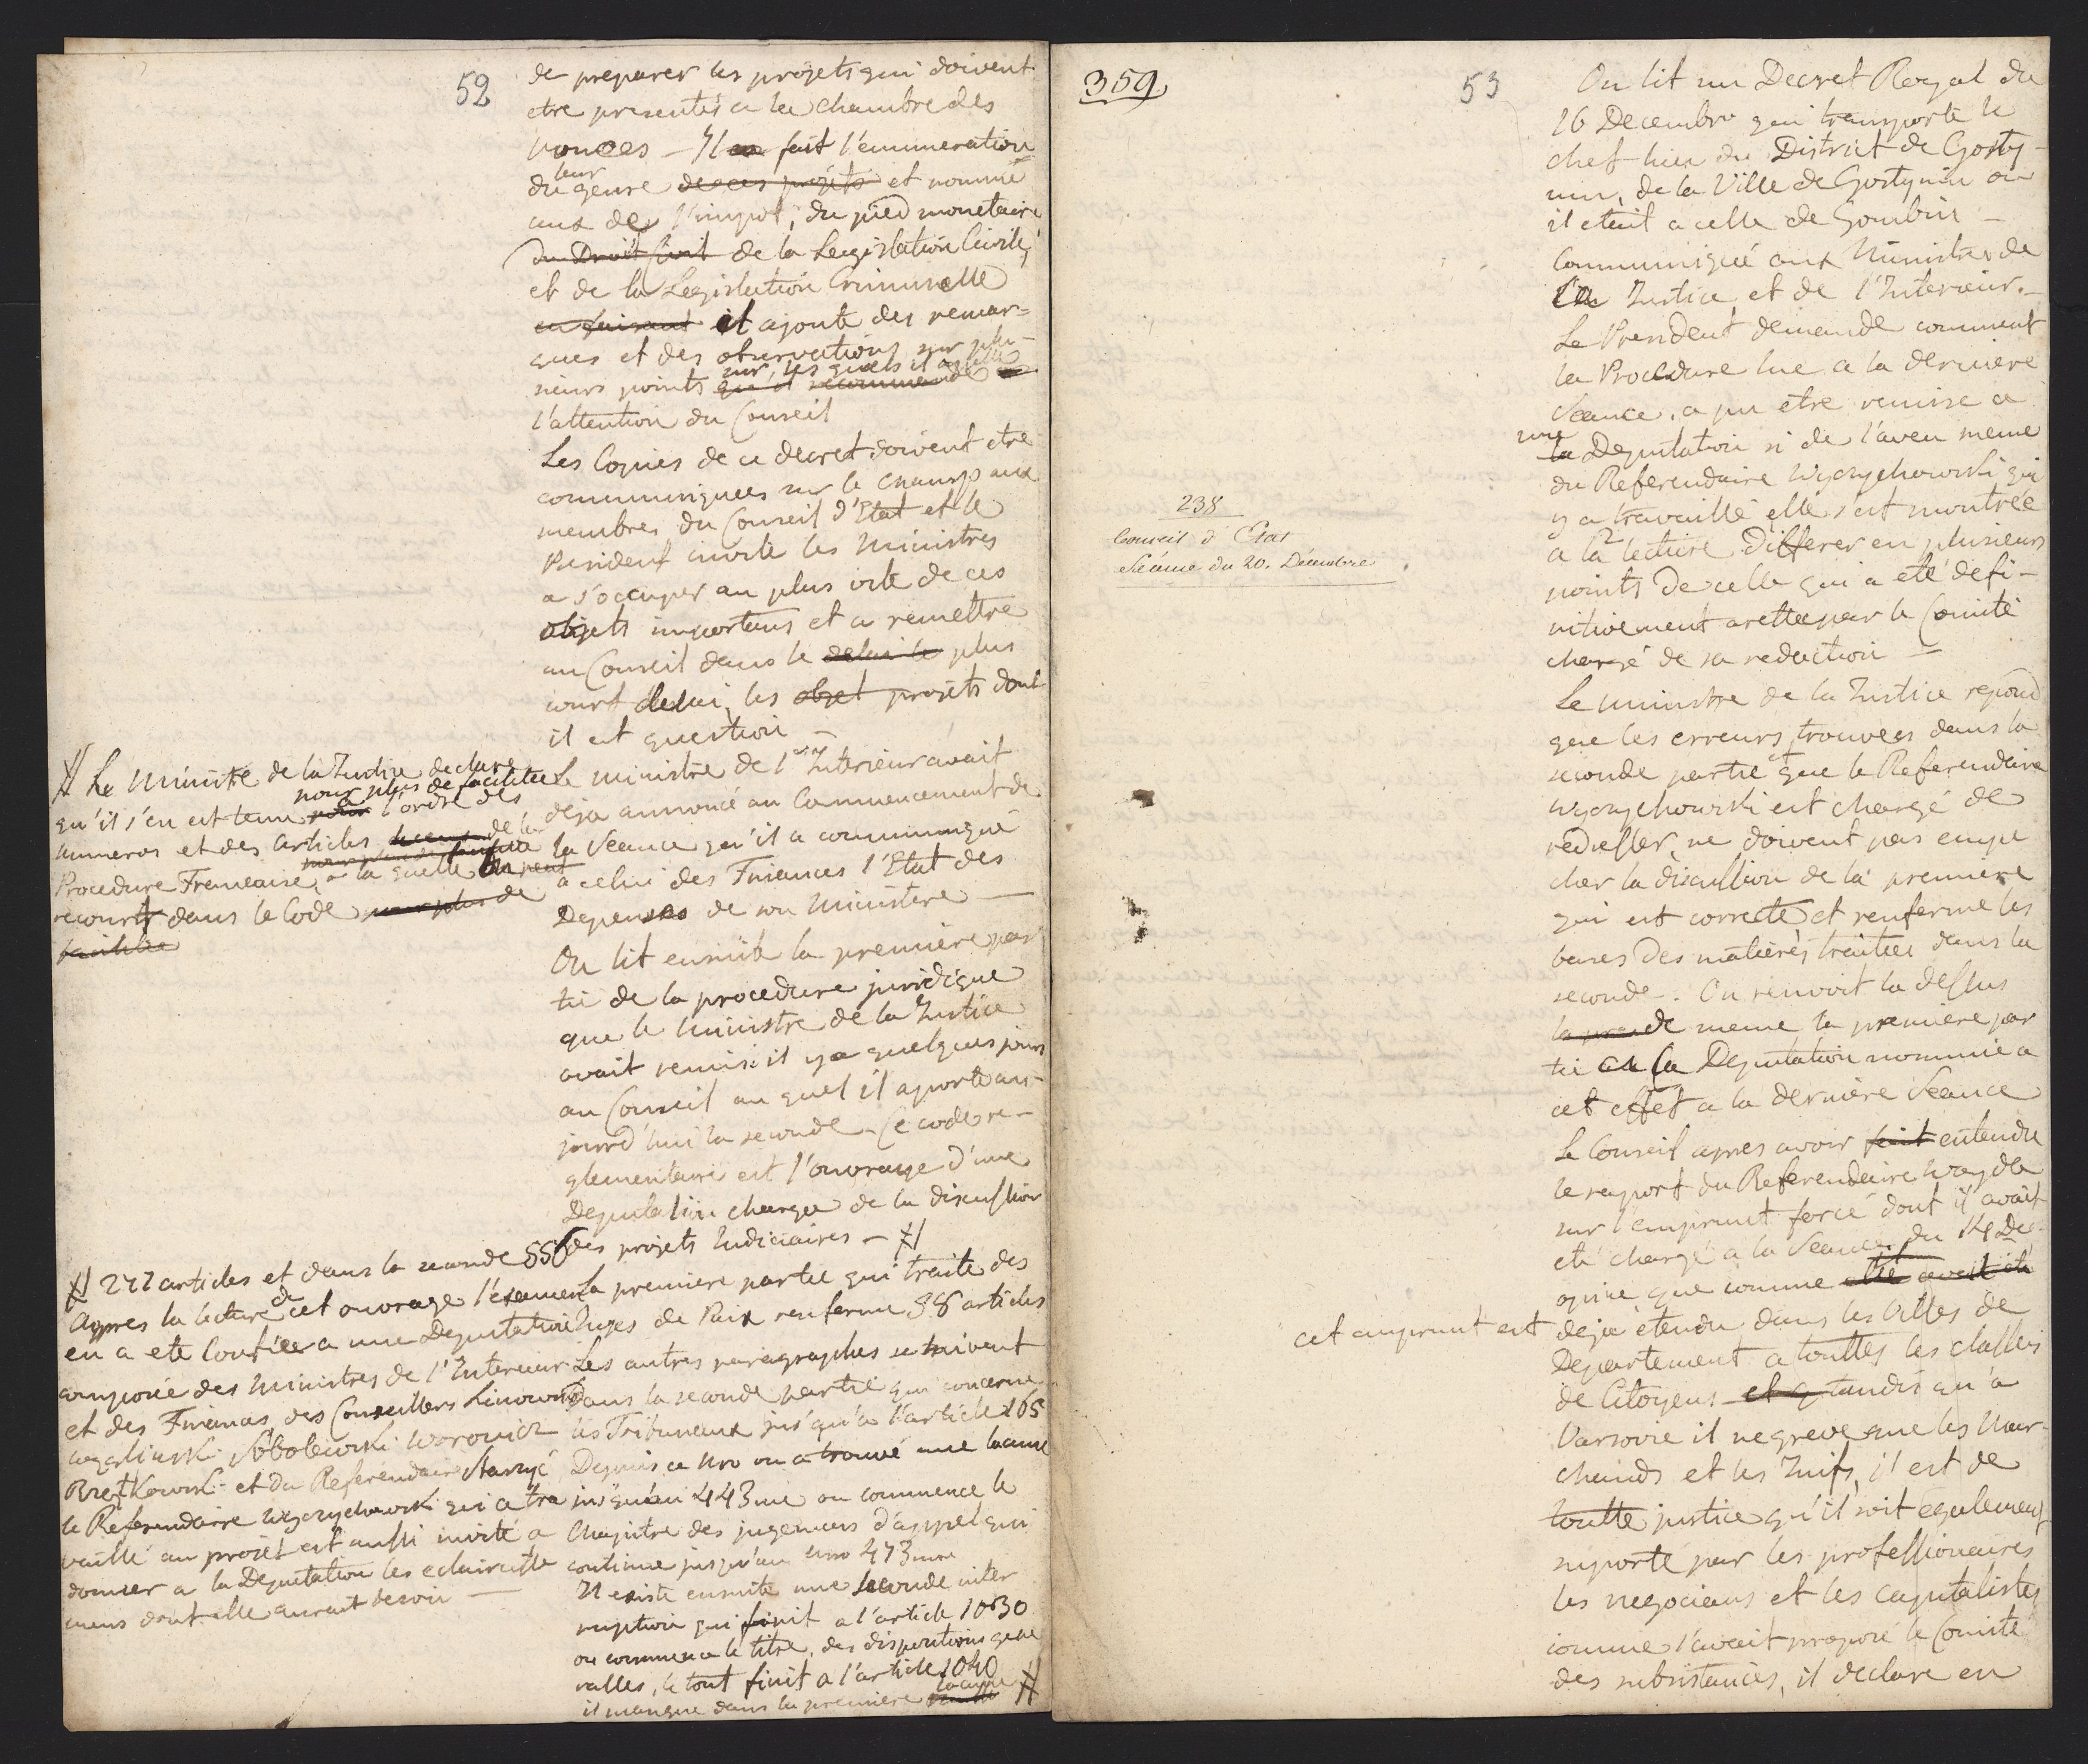 52
de preparer les projets qui doivent
etre presentés a la chambre des
nonces — Il en fait l'enumeration
du leur genre de ces projets et nomme
ceux de l'impot, du pied monetaire
du Droit Civil de la Legislation Civile,
et de la Legislation Criminelle
en faisant il ajoute des remar=
ques et des observations sur plu-
sieurs points sur les quels il appelle qu'il recommende
l'attention du Conseil
Les Copies de ce decret doivent etre
communiquées sur le champ aux
membres du Conseil d'Etat et le
President invite les Ministres
a s'occuper au plus vite de ces
objets importans et a remettre
au Conseil dans le delai le plus
court delai, les objet projets dont
il est question —
Le ministre de l'Interieur avait
deja annoncé au Commencement de
la Seance qu'il a communiqué
a celui des Finances l'Etat des
Depenses de son Ministere —
On lit ensuite la premiere par
tie de la procedure juridique
que le Ministre de la Justice
avait remise il y a quelques jours
au Conseil au quel il aporte au-
jourd'hui la seconde. Ce code re-
glementaire est l'ouvrage d'une
Deputation chargée de la discussion
des projets Judiciaires — #
La premiere partie qui traite des
Juges de Paix renferme 38 articles
Les autres paragraphes se suivent
dans la seconde partie qui concerne
les Tribunaux jusqu'a l'article 165
Depuis ce Nro on a trouvé une lacune
jusqu'au 443me ou commence le
Chapitre des jugemens d'appel qui
continue jusqu'au nro 473me
Il existe ensuite une seconde inter
ruption qui finit a l'article 1030
ou commence le titre, des dispositions gene
ralles, le tout finit a l'article 1040
il manque dans la premiere lacune #
# Le Ministre de la Justice declare
qu'il s'en est tenu pour plus de facilitée a l'ordre des
numeros et des articles de la
Procedure Francaise, a la quelle on peut
recourir dans le Code pour plus de
facilitée
# 277 articles et dans la seconde 556
Appres la lecture de cet ouvrage l'examen
en a eté confiée a une Deputation
composée des Ministres de l'Interieur
et des Finances, des Conseillers Linowski
Wegliński Sobolewski Woronicz
Bręzkowski et du Referendaire Staszyc
le Referendaire Wyczychowski qui a tra
vaillé au projet est aussi invité a
donner a la Deputation les eclairciss
mens dont elle aurait besoin —
359
53
238
Conseil d'Etat
Séance du 20. Décembre
On lit un Decret Royal du
16 Decembre qui transporte le
chef-lieu du District de Gosty-
nin, de la Ville de Gostynin ou
il etait a celle de Gombin —
Communiqué aux Ministres de
la Justice et de l'Interieur. —
Le President demande comment
la Procedure lue a la derniere
Seance, a pu etre remise a
une la Deputation si de l'aveu meme
du Referendaire Wyczychowski qui
y a travaillé elle s'est montrée
a la lecture differer en plusieurs
points de celle qui a eté defi-
nitivement aretée par le Comité
chargé de sa redaction —
Le ministre de la Justice repond
que les erreurs trouvées dans la
seconde partie et que le Referendaire
Wyczychowski est chargé de
redresser, ne doivent pas empe
cher la discussion de la premiere
qui est correcte et renferme les
bases des matieres traitées dans la
seconde —. On renvoit la dessus
de meme la premiere par
tie a la Deputation nommée a
cet effet a la derniere Seance
Le Conseil apres avoir fait entendu
le raport du Referendaire Woyda
sur l'emprunt forcé dont il avait
eté chargé a la Seance du 14 De-
opine que comme elle avait eté
cet emprunt est deja etendu dans les Villes de
Departement a touttes les classes
de Citoyens et q tandis qu'a
Varsovie il ne greve que les Mar-
chands et les Juifs, il est de
toutte justice qu'il soit egalement
suporté par les professionaires
les negocians et les capitalistes
comme l'avait proposé le Comité
des subsistances, il declare en